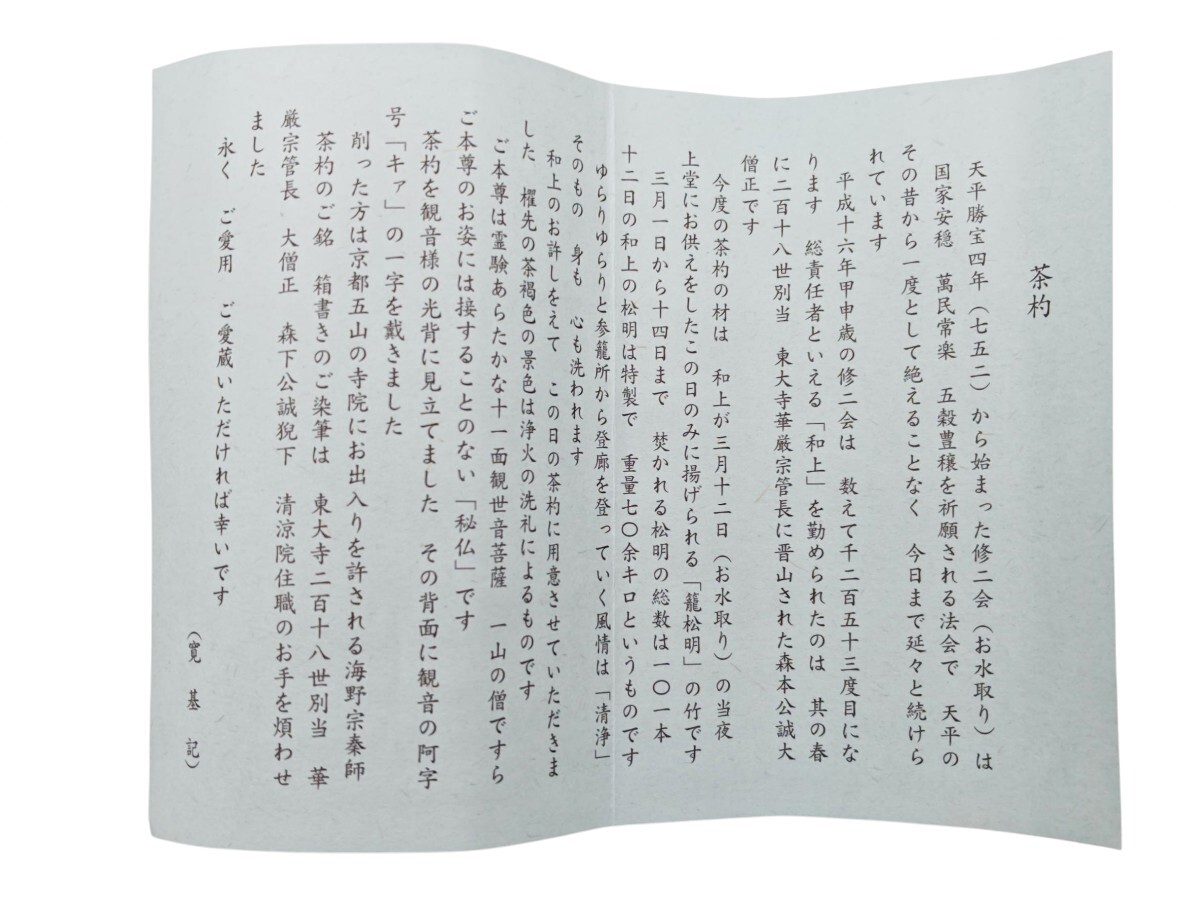 茶杓
天平勝宝四年（七五二）から始まった修二会（お水取り）は
国家安穏　萬民常楽　五穀豊穣を祈願される法会で　天平の
その昔から一度として絶えることなく　今日まで延々と続けら
れています
平成十六年甲申歳の修二会は　数えて千二百五十三度目にな
ります　総責任者といえる「和上」を勤められたのは　其の春
に二百十八世別当　東大寺華厳宗管長に晋山された森本公誠大
僧正です
今度の茶杓の材は　和上が三月十二日（お水取り）の当夜
上堂にお供えをしたこの日のみに揚げられる「籠松明」の竹です
三月一日から十四日まで　焚かれる松明の総数は一〇一本
十二日の和上の松明は特製で　重量七〇余キロというものです
ゆらりゆらりと参籠所から登廊を登っていく風情は「清浄」
そのもの　身も　心も洗われます
和上のお許しをえて　この日の茶杓に用意させていただきま
した　櫂先の茶褐色の景色は浄火の洗礼によるものです
ご本尊は霊験あらたかな十一面観世音菩薩　一山の僧ですら
ご本尊のお姿には接することのない「秘仏」です
茶杓を観音様の光背に見立てました　その背面に観音の阿字
号「キァ」の一字を戴きました
削った方は京都五山の寺院にお出入りを許される海野宗秦師
茶杓のご銘　箱書きのご染筆は　東大寺二百十八世別当　華
厳宗管長　大僧正　森下公誠猊下　清涼院住職のお手を煩わせ
ました
永く　ご愛用　ご愛蔵いただければ幸いです
（寛　基　記）